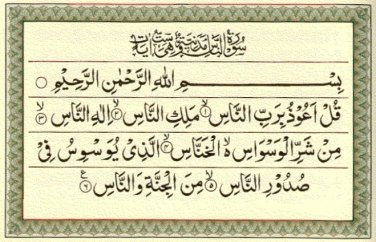 سُورَةُ النَّاسِ مَدَنِيَّةٌ وَهِيَ سِتُّ آيَاتٍ
بِسْمِ اللهِ الرَّحْمٰنِ الرَّحِيْمِ
قُلْ اَعُوْذُ بِرَبِّ النَّاسِ ۙ‏﴿۱﴾ مَلِكِ النَّاسِ ۙ‏﴿۲﴾ اِلٰهِ النَّاسِ ۙ‏﴿۳﴾
مِنْ شَرِّ الْوَسْوَاسِ ۙ الْخَنَّاسِ ۙ‏﴿۴﴾ الَّذِىْ يُوَسْوِسُ فِىْ
صُدُوْرِ النَّاسِ ۙ‏﴿۵﴾ مِنَ الْجِنَّةِ وَالنَّاسِ ‏﴿۶﴾ ع